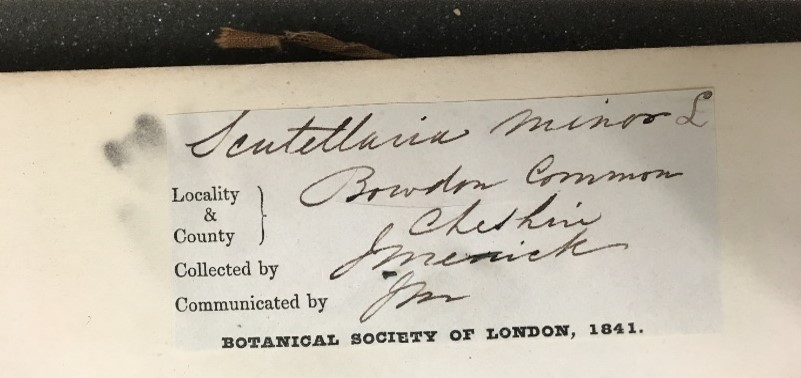 Scutellaria minor L
Locality & County } Bowdon Common
Cheshire
Collected by J Merrick
Communicated by JM
BOTANICAL SOCIETY OF LONDON, 1841.